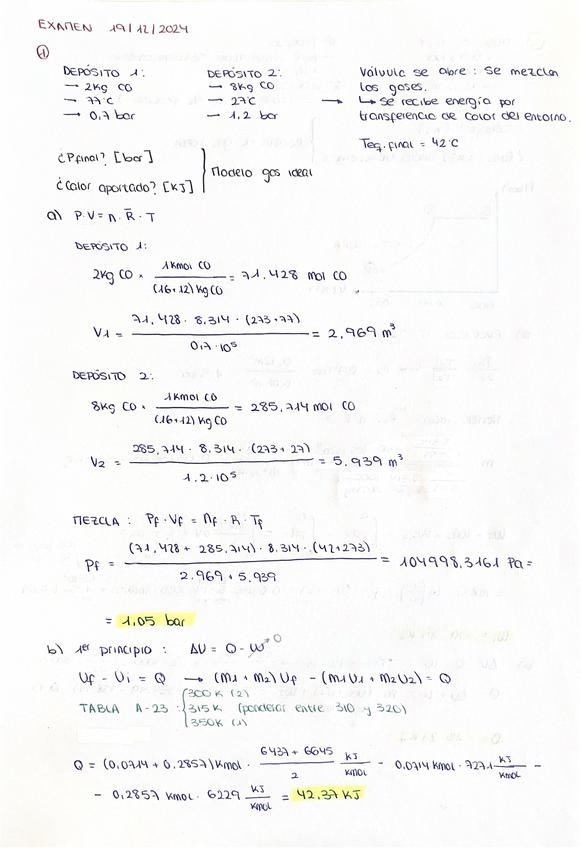 EXAMEN 19/12/2024
①
DEPÓSITO 1: DEPÓSITO 2: Válvula se abre: Se mezclan
→ 2Kg CO → 8Kg CO los gases.
→ 77°C → 27°C → ↳ Se recibe energía por
→ 0,7 bar → 1,2 bar transferencia de calor del entorno.
Teq. final = 42°C
¿Pfinal? [bar]
¿Calor aportado? [KJ] } Modelo gas ideal
a) P·V = n·R̄·T
DEPÓSITO 1:
2Kg CO · 1Kmol CO / (16+12) Kg CO = 71.428 mol CO
V1 = 71,428 · 8.314 · (273+77) / 0,7·10⁵ = 2,969 m³
DEPÓSITO 2:
8Kg CO · 1Kmol CO / (16+12) Kg CO = 285,714 mol CO
V2 = 285,714 · 8.314 · (273+27) / 1.2·10⁵ = 5.939 m³
MEZCLA: Pf·Vf = nf·R·Tf
Pf = (71,428 + 285,714) · 8.314 · (42+273) / 2.969 + 5.939 = 104998,3161 Pa =
= 1,05 bar
b) 1er principio: ΔU = Q - W⁰
Uf - Ui = Q → (m1 + m2) Uf - (m1U1 + m2U2) = Q
TABLA A-23: { 300K (2)
315K (ponderar entre 310 y 320)
350K (1)
Q = (0,0714 + 0,2857) Kmol · 6437 + 6645 / 2 KJ/Kmol - 0,0714 Kmol · 7271 KJ/Kmol -
- 0,2857 Kmol · 6229 KJ/Kmol = 42,37 KJ